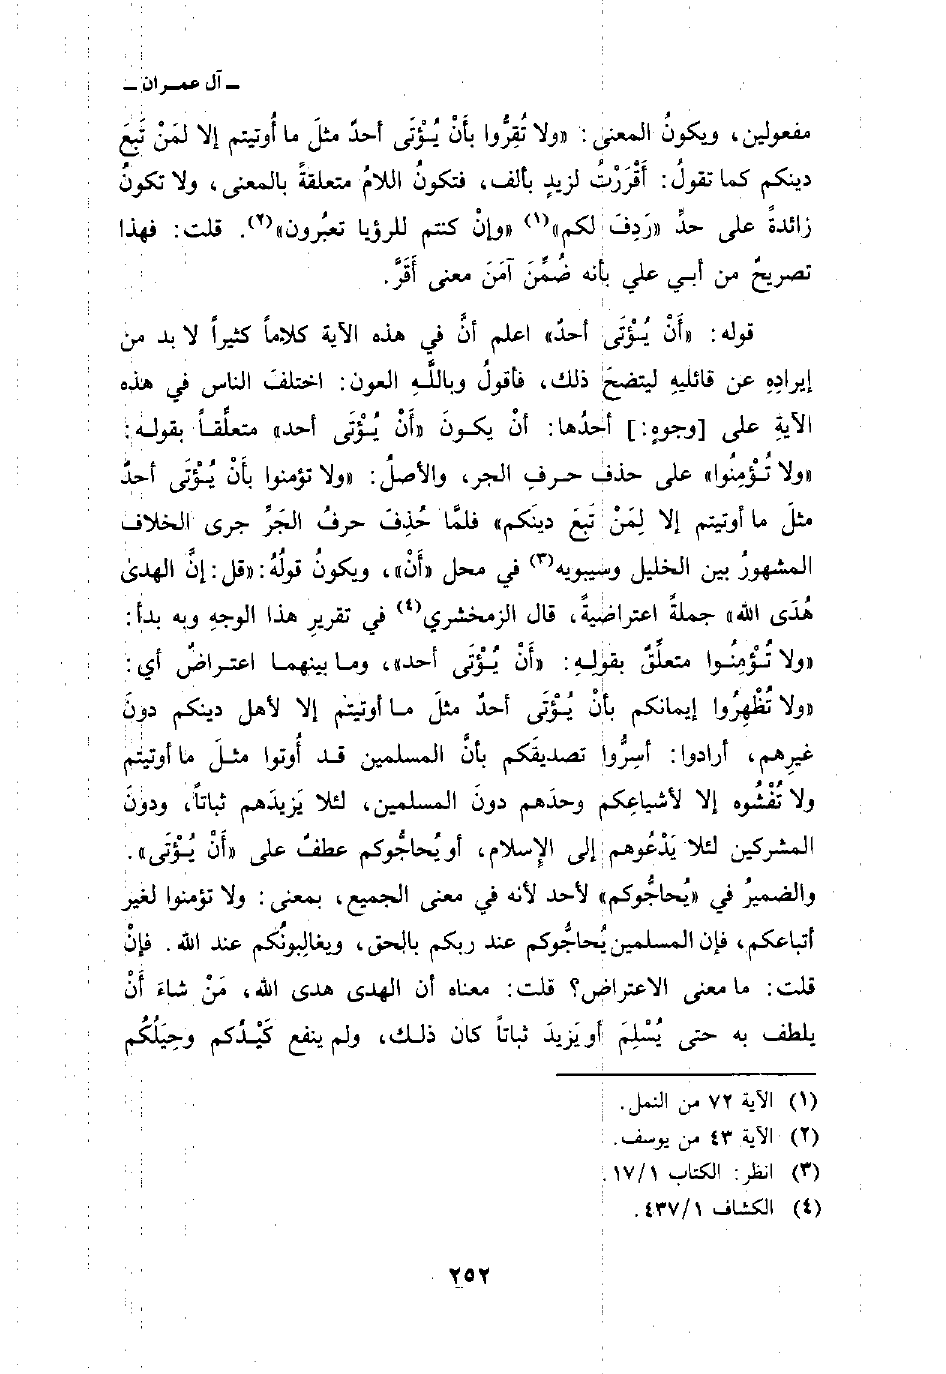 ـ آل عمـران ـ
مفعولين، ويكونُ المعنى: «ولا تُقِرُّوا بأَنْ يُـؤْتَى أحدٌ مثلَ ما أُوتيتم إلا لمَنْ تَبِعَ
دينكم كما تقولُ: أَقْرَرْتُ لزيدٍ بألف، فتكونُ اللامُ متعلقةً بالمعنى، ولا تكونُ
زائدةً على حدِّ «رَدِفَ لكم»(١) «وإنْ كنتم للرؤيا تعبُرون»(٢). قلت: فهذا
تصريحٌ من أبي علي بأنه ضُمِّنَ آمَنَ معنى أَقَرَّ.
قوله: «أَنْ يُـؤْتَى أحدٌ» اعلم أنَّ في هذه الآية كلاماً كثيراً لا بد من
إيرادِهِ عن قائليهِ ليتضحَ ذلك، فأقولُ وباللَّهِ العون: اختلفَ الناس في هذه
الآيةِ على [وجوهٍ:] أحدُها: أن يكـونَ «أَنْ يُـؤْتَى أحد» متعلِّقـاً بقولـه:
«ولا تُـؤْمِنُوا» على حذف حـرفِ الجر، والأصلُ: «ولا تؤمنوا بأَنْ يُـؤْتَى أحدٌ
مثلَ ما أوتيتم إلا لِمَنْ تَبِعَ دينَكم» فلمَّا حُذِفَ حرفُ الجَرِّ جرى الخلاف
المشهورُ بين الخليل وسيبويه(٣) في محل «أَنْ»، ويكونُ قولُهُ: «قل: إنَّ الهدىٰ
هُدَى الله» جملةً اعتراضيةً، قال الزمخشري(٤) في تقريرِ هذا الوجهِ وبه بدأ:
«ولا تُـؤْمِنُـوا متعلِّقٌ بقولِـهِ: «أَنْ يُـؤْتَى أحد»، ومـا بينهمـا اعتـراضٌ أي:
«ولا تُظْهِرُوا إيمانكم بأَنْ يُـؤْتَى أحدٌ مثلَ مـا أوتيتم إلا لأهل دينكم دونَ
غيرِهم، أرادوا: أسِرُّوا تصديقَكم بأنَّ المسلمين قـد أُوتوا مثـلَ ما أوتيتم
ولا تُفْشُوه إلا لأشياعِكم وحدَهم دونَ المسلمين، لئلا يَزيدَهم ثباتاً، ودونَ
المشركين لئلا يَدْعُوهم إلى الإِسلام، أو يُحاجُّوكم عطفٌ على «أَنْ يُـؤْتَى».
والضميرُ في «يُحاجُّوكم» لأحد لأنه في معنى الجميع، بمعنى: ولا تؤمنوا لغير
أتباعكم، فإن المسلمين يُحاجُّوكم عند ربكم بالحق، ويغالِبونُكم عند الله. فإنْ
قلت: ما معنى الاعتراض؟ قلت: معناه أن الهدى هدى الله، مَنْ شاءَ أَنْ
يلطف به حتى يُسْلِمَ أو يَزيدَ ثباتاً كان ذلـك، ولم ينفع كَيْـدُكم وحِيَلُكم
(١) الآية ٧٢ من النمل.
(٢) الآية ٤٣ من يوسف.
(٣) انظر: الكتاب ١٧/١.
(٤) الكشاف ٤٣٧/١.
٢٥٢